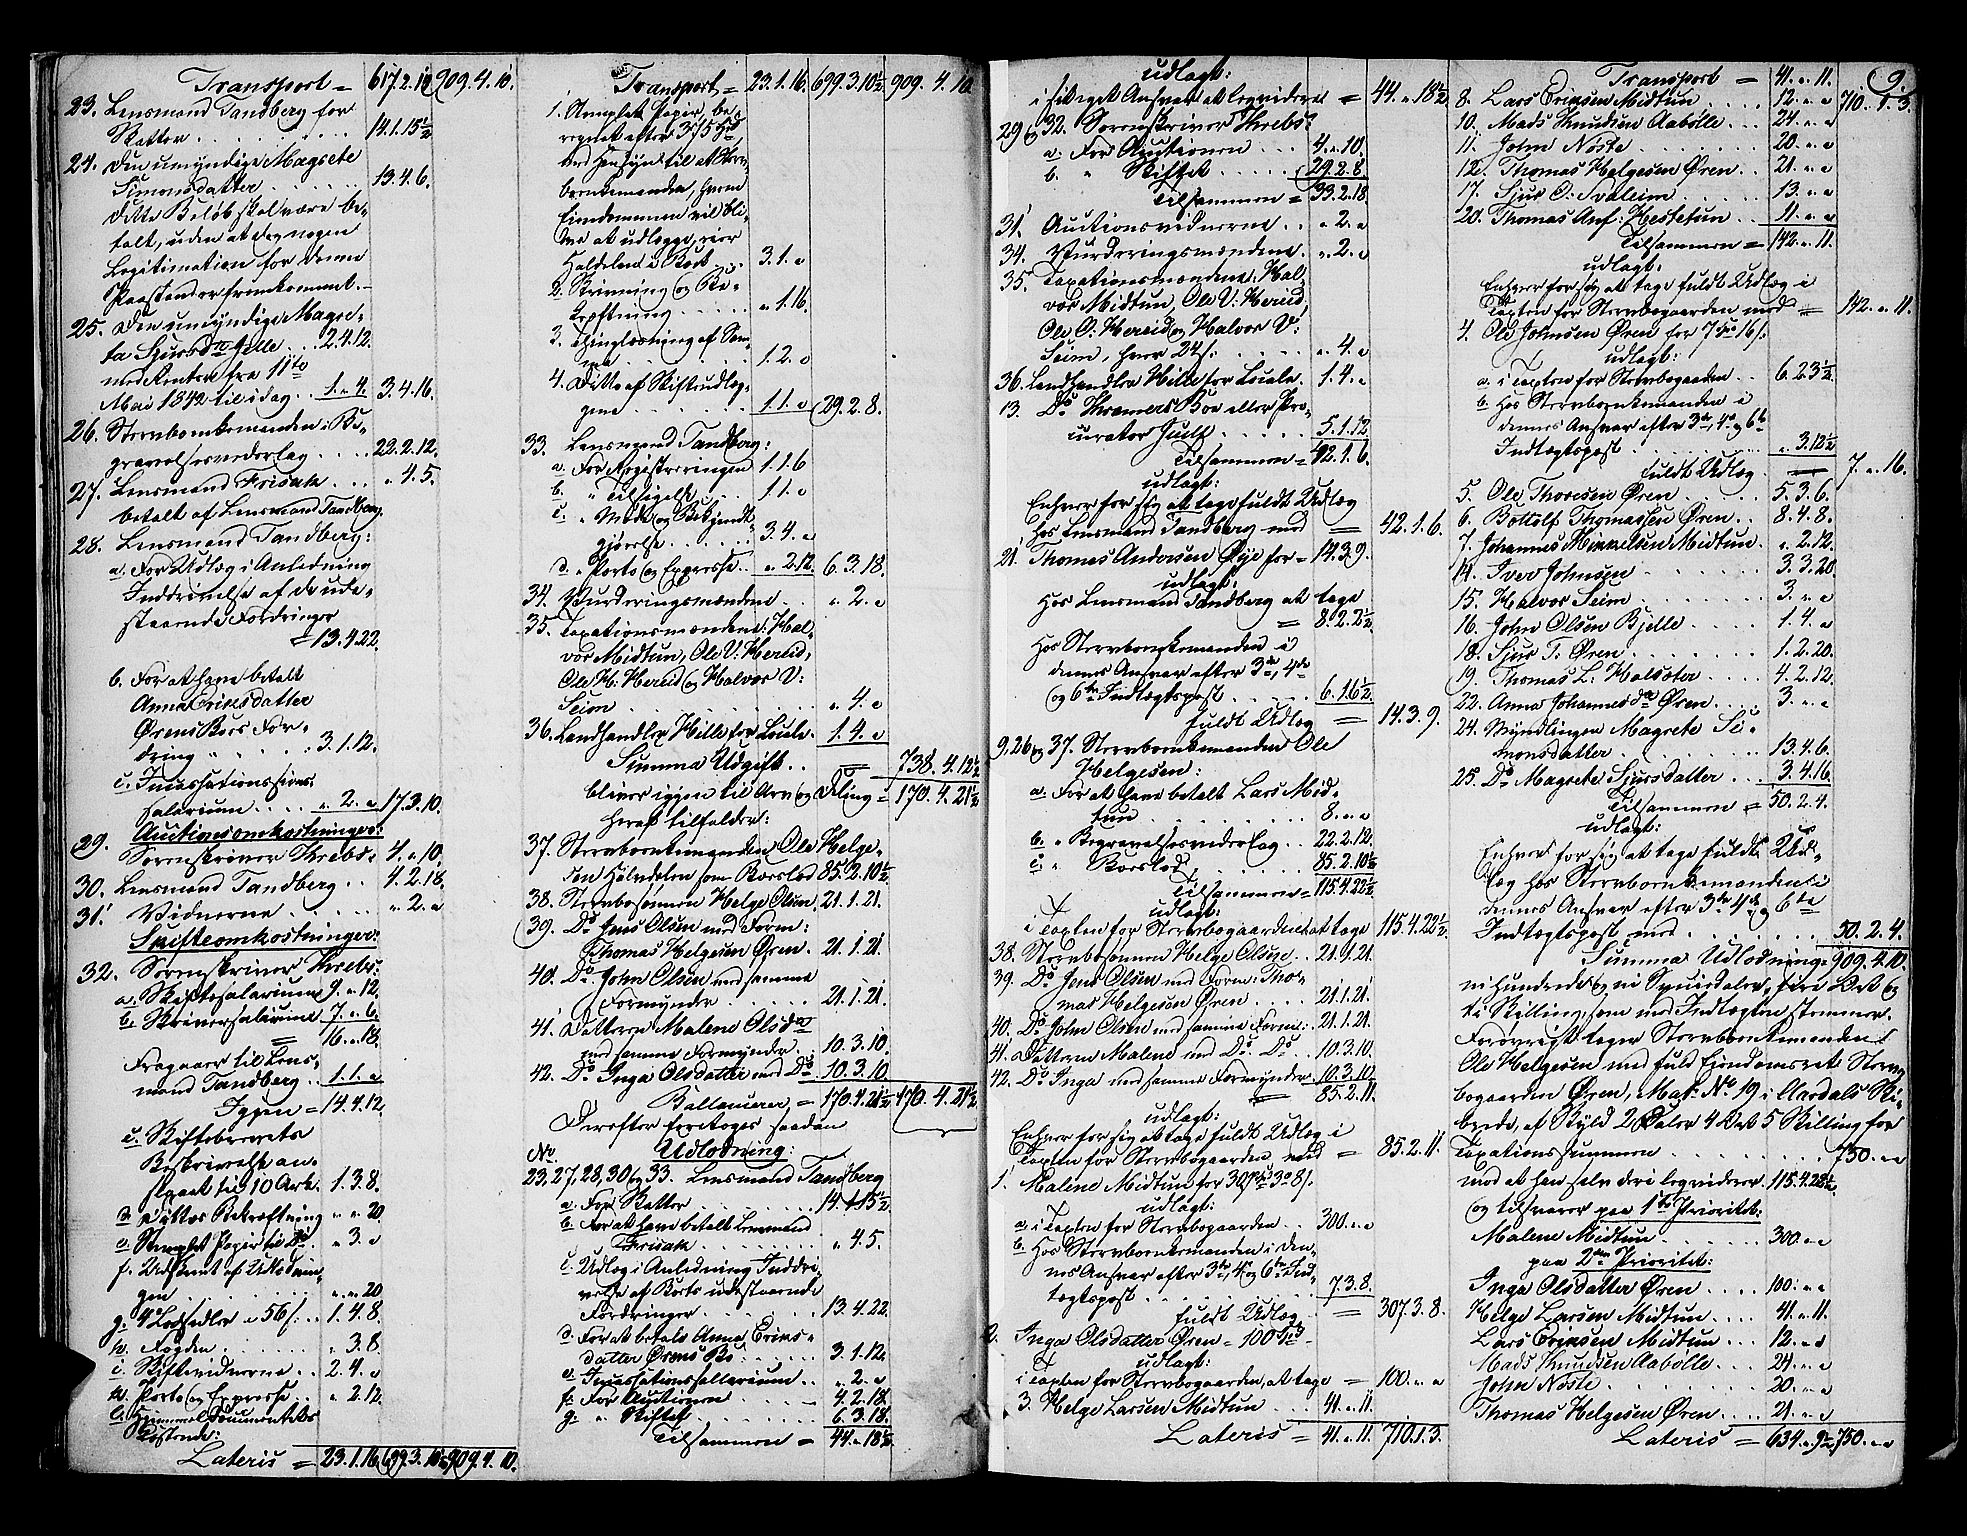 Transport = 617.2.10 909.4.10.
23. Lensmand Tandberg for
Skatter . . . 14.1.15½
24. Den umyndige Magrete
Simonsdatter . . . 13.4.6.
Dette Beløb skal være be-
talt, uden at dog nogen
Legitimation for denne
Paastand er fremkommet. –
25. Den umyndige Magre-
ta Sjursdtr Gjelle . . 2.4.12.
med Renter fra 11te
Mai 1842 til idag . . 1.„.4. 3.4.16.
26. Stervboenkemanden i Be-
gravelsesvederlag . . . 22.2.12.
27. Lensmand Frisak . . . „ 4.5.
betalt af Lensmand Tandberg.
28. Lensmand Tandberg:
a. For Udlæg i Anledning
Inddrivelse af de ude-
staaende Fordringer
= 13.4.22.
b. For at have betalt
Anna Eriksdatter
Ørens Boes For-
dring „ „ . . 3.1.12.
c. Incassations-
salarium . . . „ 2. „ 17.3.10.
Auctionsomkostninger:
29. Sorenskriver Krebs: 4.„.10.
30. Lensmand Tandberg . . 4.2.18.
31. Vidnerne . . . . „ 2. „
Skifteomkostninger:
32. Sorenskriver Krebs:
a. Skiftesalarium 9.„.12.
b. Skriversalarium 7.„.6.
= 16.„.18.
Fragaaer til Lens-
mand Tandberg . . 1.1.„
Igjen = 14.4.12.
c. Skiftebrevets
Beskrivelse an-
slaaet til 10 Ark . 1.3.8.
d. Dettes Bekræftning „ „ 20.
e. Stemplet Papir til Do . . „ 3. „
f. Udskrivt af Udlodnin-
gen . . . . „ „ 20
g. 4 Lodsedler a 56 s. . . 1.4.8.
h. Fogden . . . . „ 3.8.
i. Skiftevidnerne . . . 2.4.„
k. Porto og Expresse . . „ 2.12.
l. Gammel Documenters
Kostende:
Lateris = 23.1.16. 699.3.10½ 909.4.10.
Transport = 23.1.16. 699.3.10½ 909.4.10.
1. Stemplet Papir, be-
regnet efter 375 Spd,
med Hensyn til at Sterv-
boenkemanden, hvem
Eiendommen vil bli-
ve at udlægge, eier
Halvdelen i Boet . . . 3.1.„
2. Skrivning og Be-
kræftning . . . . „ 1.16.
3. Thinglæsning af Sam-
me . . . . 1.2.„
4. Ditto af Skifteudlæg-
gene . . . . 1.1.„ 29.2.8.
33. Lensmand Tandberg:
a. For Registreringen 1.1.6
b. „ Tilsigelse . . 1.1.„
c. „ Møde og Bekjendt-
gjørelse . . . 3.4.„
d. „ Porto og Expresse . . „ 2.12. 6.3.18.
34. Vurderingsmændene . . „ 2. „
35. Taxationsmændene: Hal-
vor Midtun, Ole V: Hereid,
Ole H. Hereid og Halvor V:
Seim . . . . „ 4. „
36. Landhandler Hille for Locale. 1.4.„
Summa Udgift . . = 738.4.12½
bliver igjen til Arv og Deling = 170.4.21½
Heraf tilfalder:
37. Stervboenkemanden Ole Helge-
sen Halvdelen som Boeslod 85.2.10½
38. Stervbosønnen Helge Olsen. 21.1.21.
39. Do Jens Olsen med Form:
Thomas Helgesen Øren . 21.1.21.
40. Do John Olsen med samme
Formynder . . . . 21.1.21.
41. Datteren Malene Olsdtr
med samme Formynder . . 10.3.10.
42. Do Inga Olsdatter med Do. 10.3.10
Ballancerer = 170.4.21½ 170.4.21½
Derefter foretoges saadan
No. Udlodning:
23,27,28,30 og 33. Lensmand Tandberg
a. For Skatter . . . . 14.1.15½
b. For at have betalt Lensmand
Frisak . . . . „ 4.5.
c. Udlæg i Anledning Inddri-
velse af Boets udestaaende
Fordringer . . . . 13.4.22.
d. For at betale Anna Eriks-
datter Ørens Bo . . . . 3.1.12.
e. Incassationssallarium . . „ 2. „
f. For Auctionen . . . 4.2.18.
g. „ Skiftet . . . . 6.3.18.
Tilsammen = 44.„.18½
udlagt:
i sit eget Ansvar at leqvidere = 44.„.18½
29 og 32. Sorenskriver Krebs:
a. For Auctionen . . . 4.„.10.
b. „ Skiftet . . . . 29.2.8.
Tilsammen = 33.2.18.
31. Auctionsvidnerne . . „ 2. „
34. Vurderingsmændene . „ 2. „
35. Taxationsmændene: Hal-
vor Midtun, Ole V: Hereid,
Ole O: Hereid og Halvor V:
Seim, hver 24 s. . . . „ 4. „
36. Landhandler Hille for Locale. 1.4.„
13. Do Kramers Boe eller Pro-
curator Juell . . . . 5.1.12.
Tilsammen = 42.1.6.
udlagt:
Enhver for sig at tage fuldt Udlæg
hos Lensmand Tandberg med = 42.1.6.
21. Thomas Andersen Øye for = 14.3.9.
udlagt:
Hos Lensmand Tandberg at tage
= 8.2.2½
Hos Stervboenkemanden i
dennes Ansvar efter 3de, 4de
og 6te Indtægtspost . . . 6.1.6½
fuldt Udlæg = 14.3.9.
9,26 og 37. Stervboenkemanden Ole
Helgesen:
a. For at have betalt Lars Mid-
tun . . . . 8.„.„
b. „ Begravelsesvederlag . . 22.2.12.
c. „ Boeslod . . 85.2.10½
Tilsammen = 115.4.22½
udlagt:
i Taxten for Stervbogaarden at tage 115.4.22½
38. Stervbosønnen Helge Olsen . . 21.1.21.
39. Do Jens Olsen med Form: Tho-
mas Helgesen Øren . . . 21.1.21.
40. Do John Olsen med samme Form: 21.1.21.
41. Datteren Malene med Do. Do. . . 10.3.10.
42. Do Inga med samme Formynder 10.3.10
= 85.2.11.
udlagt:
Enhver for sig at tage fuldt Udlæg i
Taxten for Stervbogaarden med = 85.2.11.
1. Maline Midtun for 307 Spd 3 ort 8 s.
udlagt:
a. i Taxten for Stervbogaarden . . 300.„.„
b. Hos Stervboenkemanden i den-
nes Ansvar efter 3de, 4de og 6te Ind-
tægtspost . . . . 7.3.8.
fuldt Udlæg . . = 307.3.8.
2. Inga Olsdatter Øren = 100 Spd –
udlagt:
i Taxten for Stervbogaarden, at tage = 100.„.„
3. Helge Larsen Midtun . . . 41.„.11.
Lateris = 41.„.11. 710.1.3.
9.
Transport = 41.„.11.
8. Lars Eriksen Midtun . . . . 12.„.„ 710.1.3.
10. Mads Knudsen Aabølle . . . 24.„.„
11. John Noste . . . . 20.„.„
12. Thomas Helgesen Øren . . 21.„.„
17. Sjur O. Svaleim . . . . 13.„.„
20. Thomas And: Hestetun . . . 11.„.„
Tilsammen = 142.„.11.
udlagt:
Enhver for sig at tage fuldt Udlæg i
Taxten for Stervbogaarden med = 142.„.11.
4. Ole Johnsen Øren for 7 Spd 16 s.
udlagt:
a. i Taxten for Stervbogaarden . . 6.2.3½
b. Hos Stervboenkemanden i
dennes Ansvar efter 3de, 4de og 6te
Indtægtspost . . . . „ 3.12½
fuldt Udlæg = 7.„.16.
5. Ole Thoresen Øren . . . . 5.3.6.
6. Bottolf Thomassen Øren . . 8.4.8.
7. Johannes Mikkelsen Midtun . „ 2.12.
14. Iver Johnsen . . . . 3.3.20.
15. Halvor Seim . . . . 3.„.„
16. John Olsen Bjelle . . . . 1.4.„
18. Sjur T. Øren . . . . 1.2.20.
19. Thomas L. Halsøter . . . . 4.2.12.
22. Anna Johannesdtr Øren . . . 3.„.„
24. Myndlingen Magrete Si-
monsdatter . . . . 13.4.6.
25. Do Magrete Sjursdatter . . . 3.4.16.
Tilsammen = 50.2.4.
udlagt:
Enhver for sig at tage fuldt Ud-
læg hos Stervboenkemanden i
dennes Ansvar efter 3de, 4de og 6te
Indtægtspost med . . . . 50.2.4.
Summa Udlodning = 909.4.10.
ni Hundrede og ni Speciedaler, fire Ort og
ti Skilling, som med Indtægten stemmer.
Forøvrigt tager Stervboenkemanden
Ole Helgesen med fuld Eiendomsret Sterv-
bogaarden Øren, Mat: No 19 i Aardals Ski-
brede, af Skyld 2 Daler 4 Ort 5 Skilling for
Taxationssummen . . . . 750.„.„
mod at han selv deri leqviderer 115.4.22½
og tilsvarer paa 1ste Prioritet:
Malene Midtun . . . . 300.„.„
paa 2den Prioritet:
Inga Olsdatter Øren . . . 100.„.„
Helge Larsen Midtun . . . 41.„.11.
Lars Eriksen Midtun . . . 12.„.„
Mads Knudsen Aabølle . . . 24.„.„
John Noste . . . . 20.„.„
Thomas Helgesen Øren . . . 21.„.„
Lateris = 634.„.9½ 750.„.„